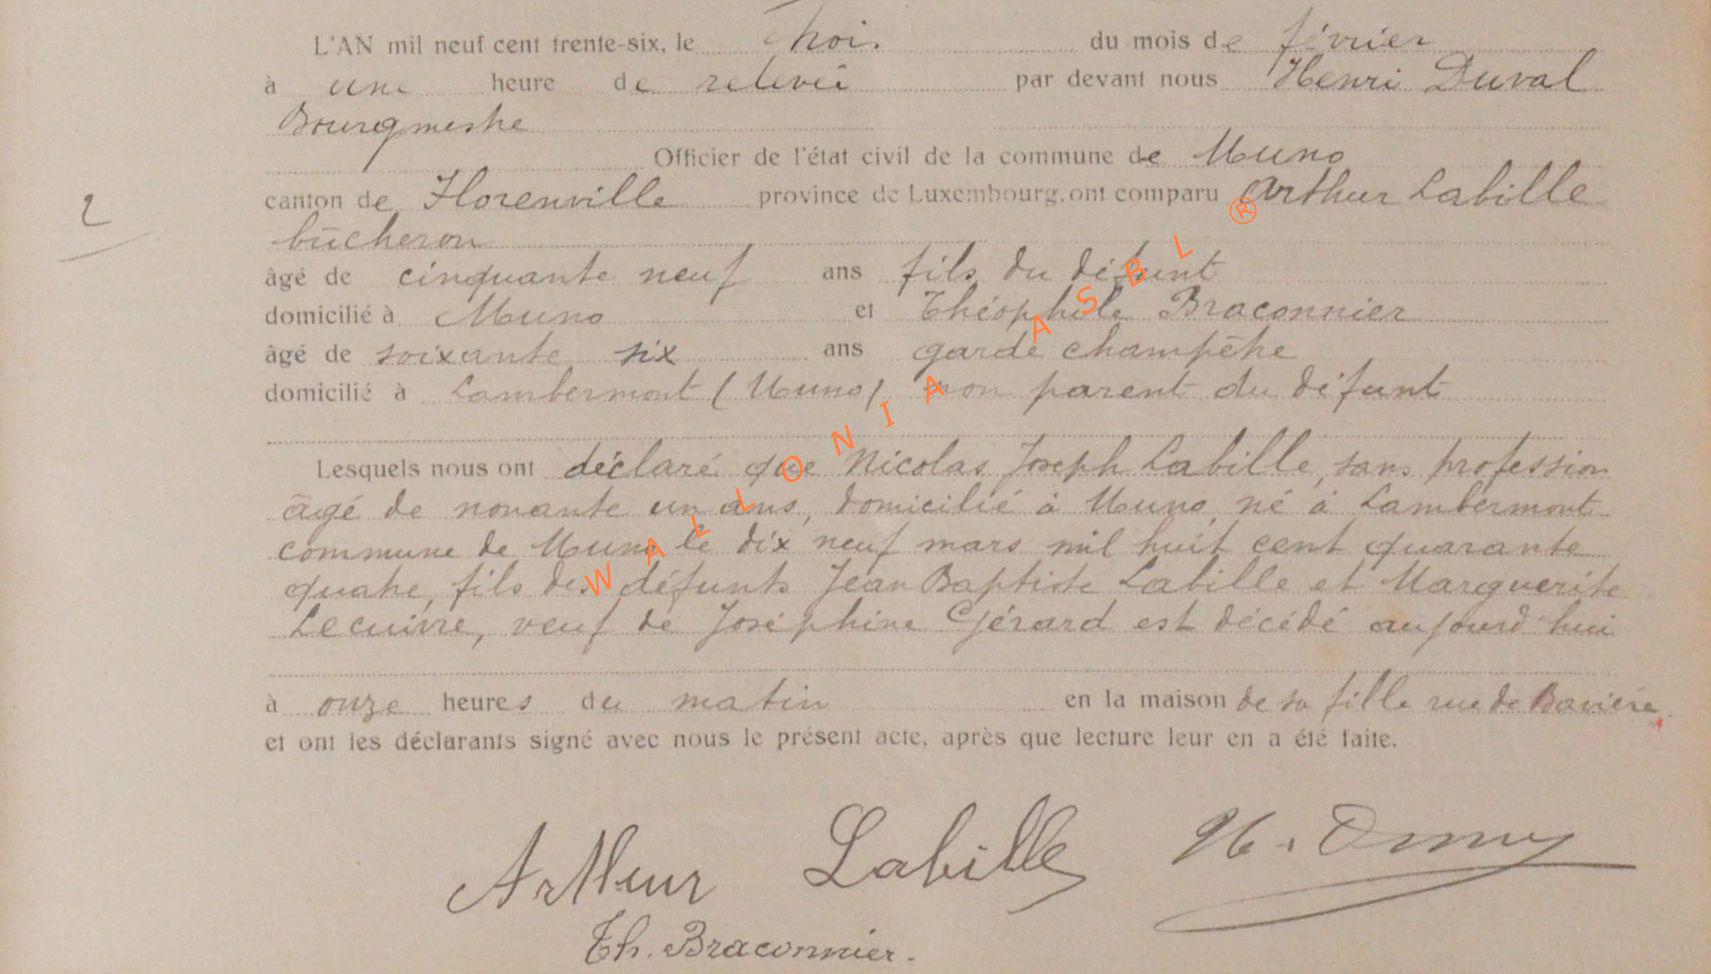 L'AN mil neuf cent trente-six, le trois du mois de février
à une heure de relevée par devant nous Henri Duval
Bourgmestre
Officier de l'état civil de la commune de Muno
2
canton de Florenville province de Luxembourg, ont comparu Arthur Labille
bûcheron
âgé de cinquante neuf ans fils du défunt
domicilié à Muno et Théophile Braconnier
âgé de soixante six ans garde champêtre
domicilié à Lambermont (Muno) non parent du défunt
Lesquels nous ont déclaré que Nicolas Joseph Labille, sans profession
âgé de nonante un ans, domicilié à Muno, né à Lambermont
commune de Muno le dix neuf mars mil huit cent quarante
quatre, fils des défunts Jean Baptiste Labille et Marguerite
Lecuivre, veuf de Joséphine Gérard est décédé aujourd'hui
à onze heures du matin en la maison de sa fille rue de Bavière
et ont les déclarants signé avec nous le présent acte, après que lecture leur en a été faite.
Arthur Labille
Th. Braconnier.
WALLONIA ASBL ®